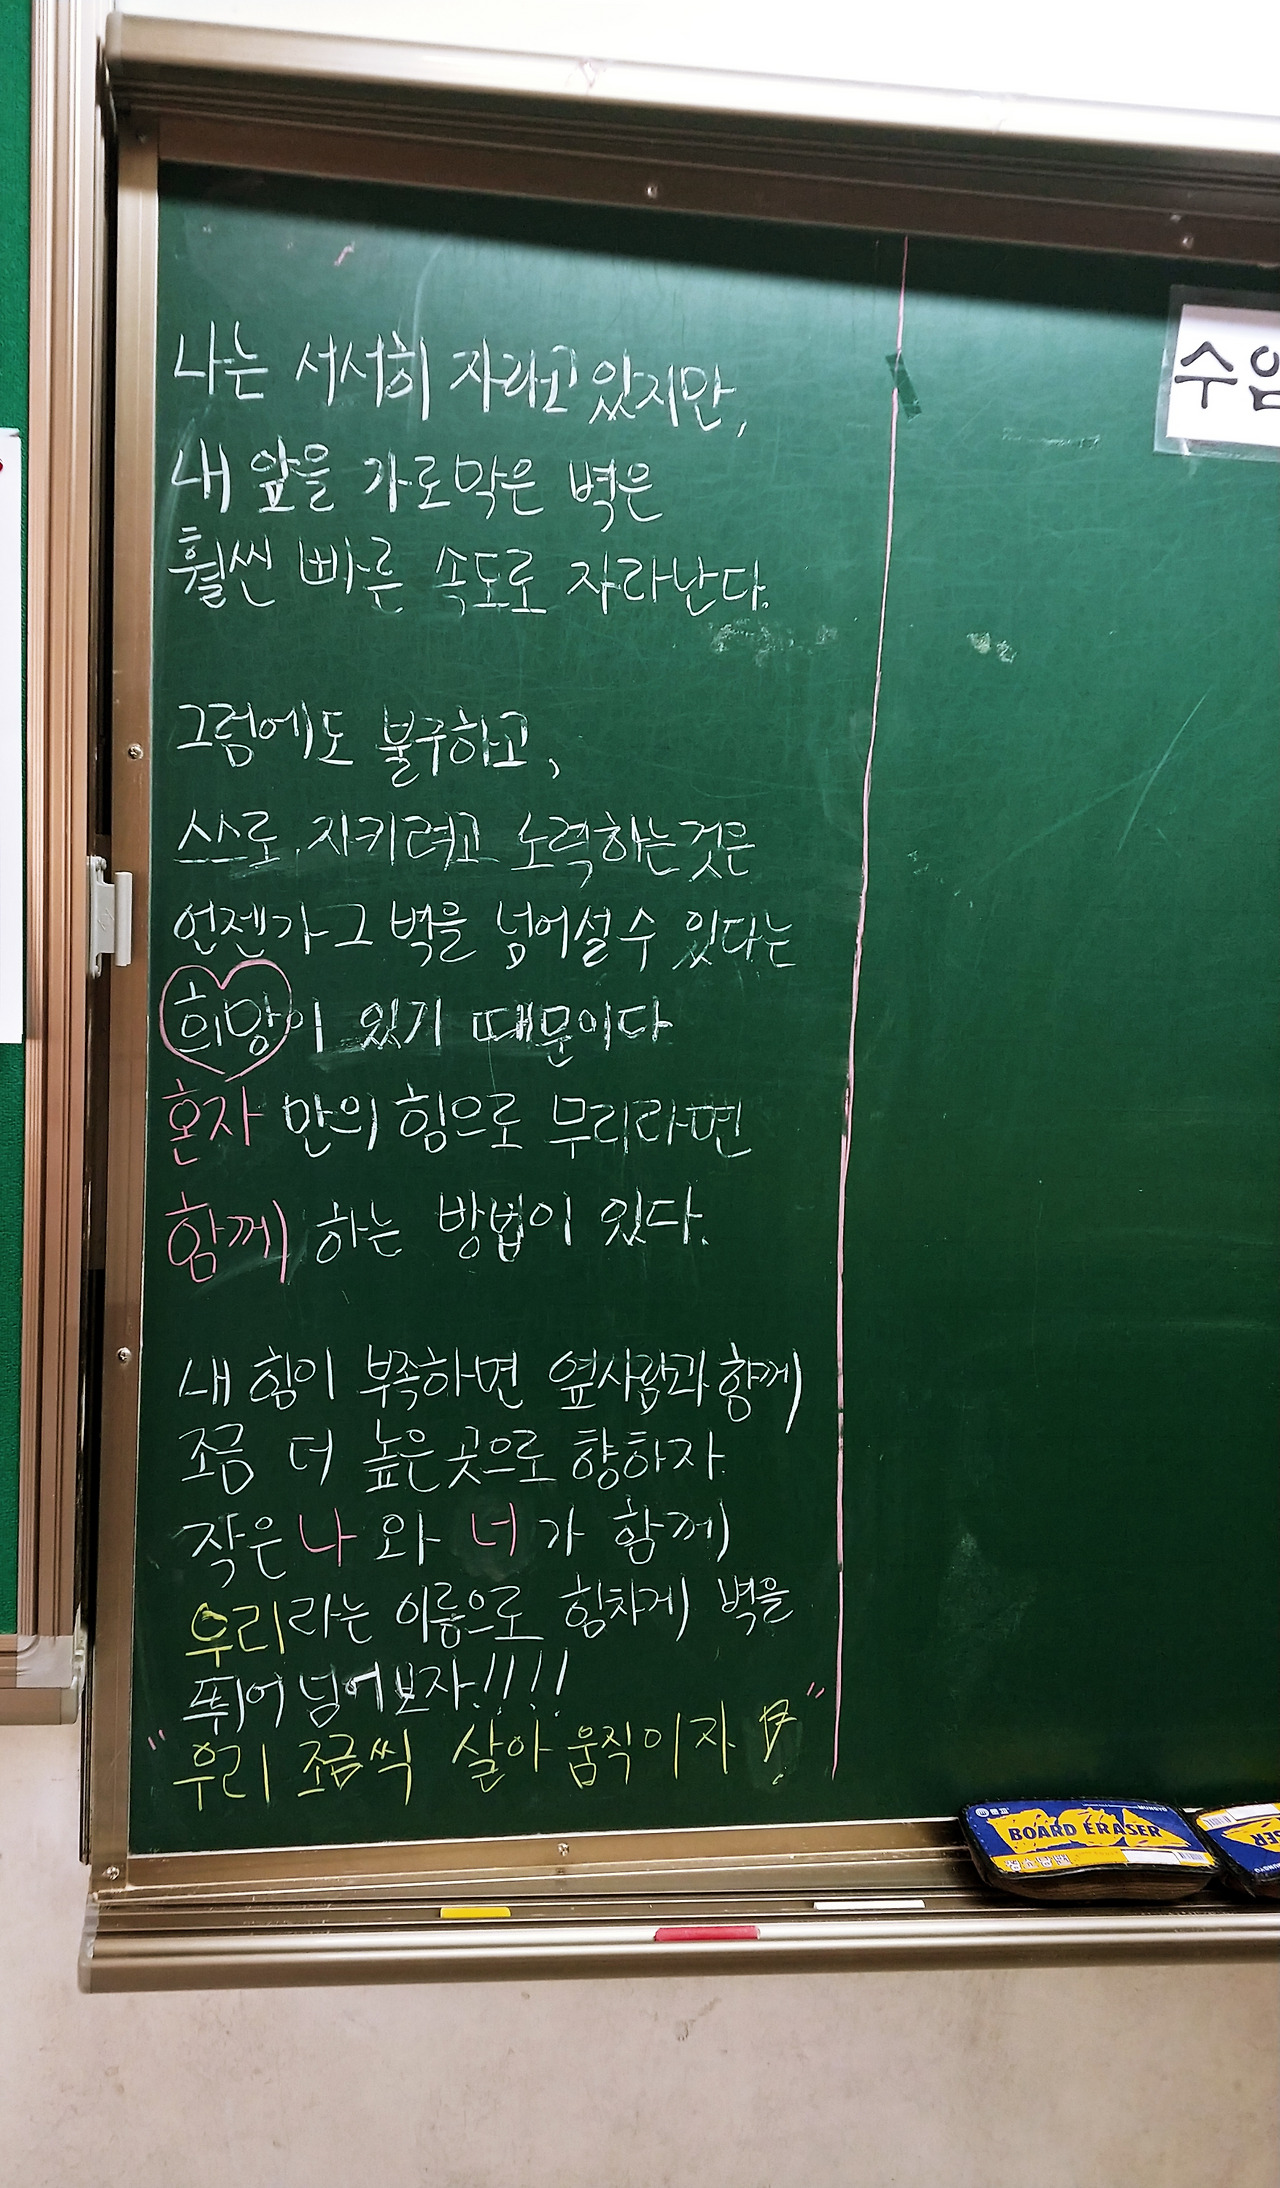 나는 서서히 자라고 있지만,
내 앞을 가로막은 벽은
훨씬 빠른 속도로 자라난다.
그럼에도 불구하고,
스스로 지키려고 노력하는것은
언젠가 그 벽을 넘어설 수 있다는
희망이 있기 때문이다
혼자 만의 힘으로 무리라면
함께 하는 방법이 있다.
내 힘이 부족하면 옆사람과 함께
조금 더 높은 곳으로 향하자.
작은 나 와 너 가 함께
우리라는 이름으로 힘차게 벽을
뛰어 넘어보자!!!!
"우리 조금씩 살아 움직이자!"
수
BOARD ERASER